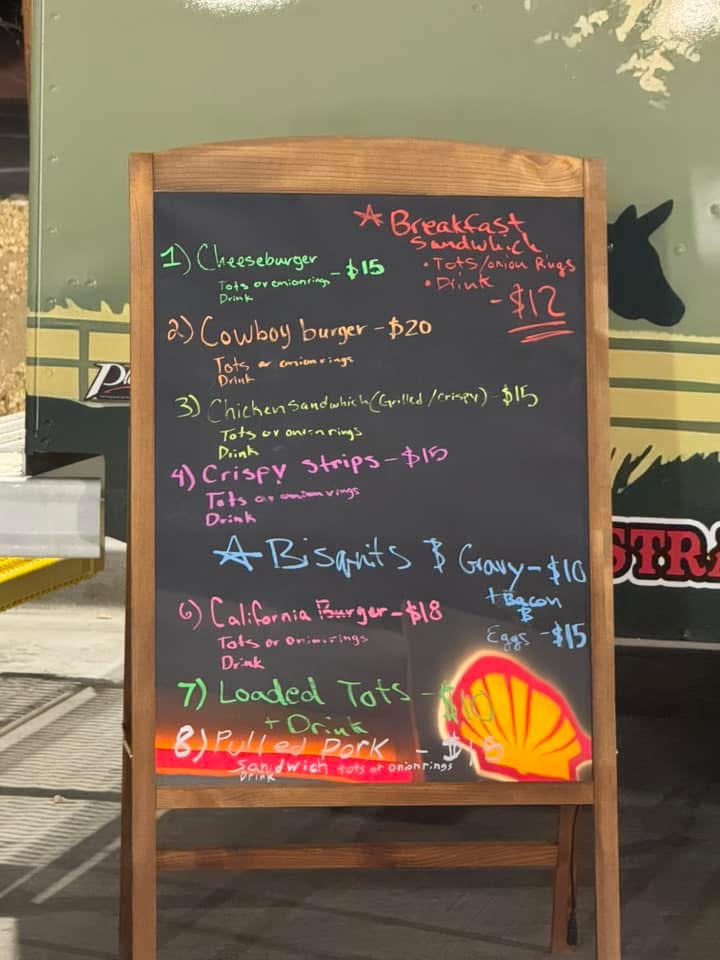 ☆ Breakfast
Sandwhich
• Tots/onion Rings
• Drink
- $12
1) Cheeseburger - $15
Tots or onion rings
Drink
2) Cowboy burger - $20
Tots or onion rings
Drink
3) Chicken Sandwhich (Grilled/crispy) - $15
Tots or onion rings
Drink
4) Crispy strips - $15
Tots or onion rings
Drink
☆ Bisquits & Gravy - $10
+ Bacon
&
Eggs - $15
6) California Burger - $18
Tots or onion rings
Drink
7) Loaded Tots - $10
+ Drink
8) Pulled Pork - $15
Sandwich tots or onion rings
Drink
STR